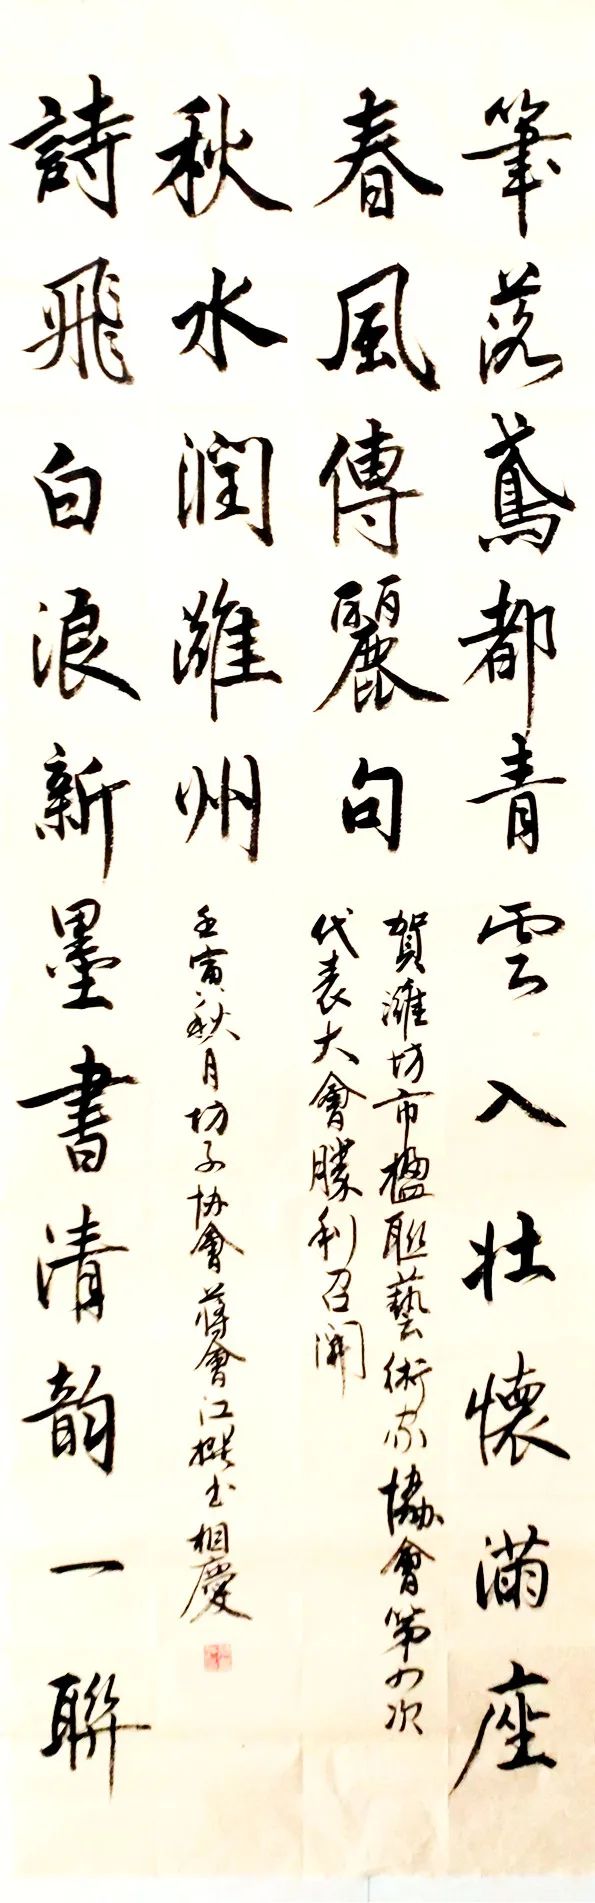 筆落鳶都青雲入壯懷滿座
春風傳麗句
賀濰坊市楹聯藝術家協會第四次
代表大會勝利召開
詩飛白浪新墨書清韵一聯
秋水潤濰州
壬寅秋月坊子协會蔣會江撰书相慶